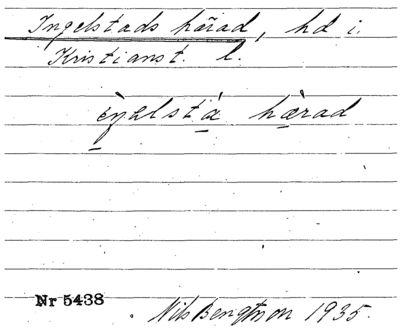 Ingelstads härad, hd i.
Kristianst. l.
härad
Nr 5438
Nils Bengtson 1935.